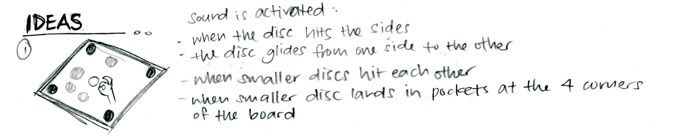 IDEAS
①
sound is activated:
- when the disc hits the sides
- the disc glides from one side to the other
- when smaller discs hit each other
- when smaller disc lands in pockets at the 4 corners
of the board